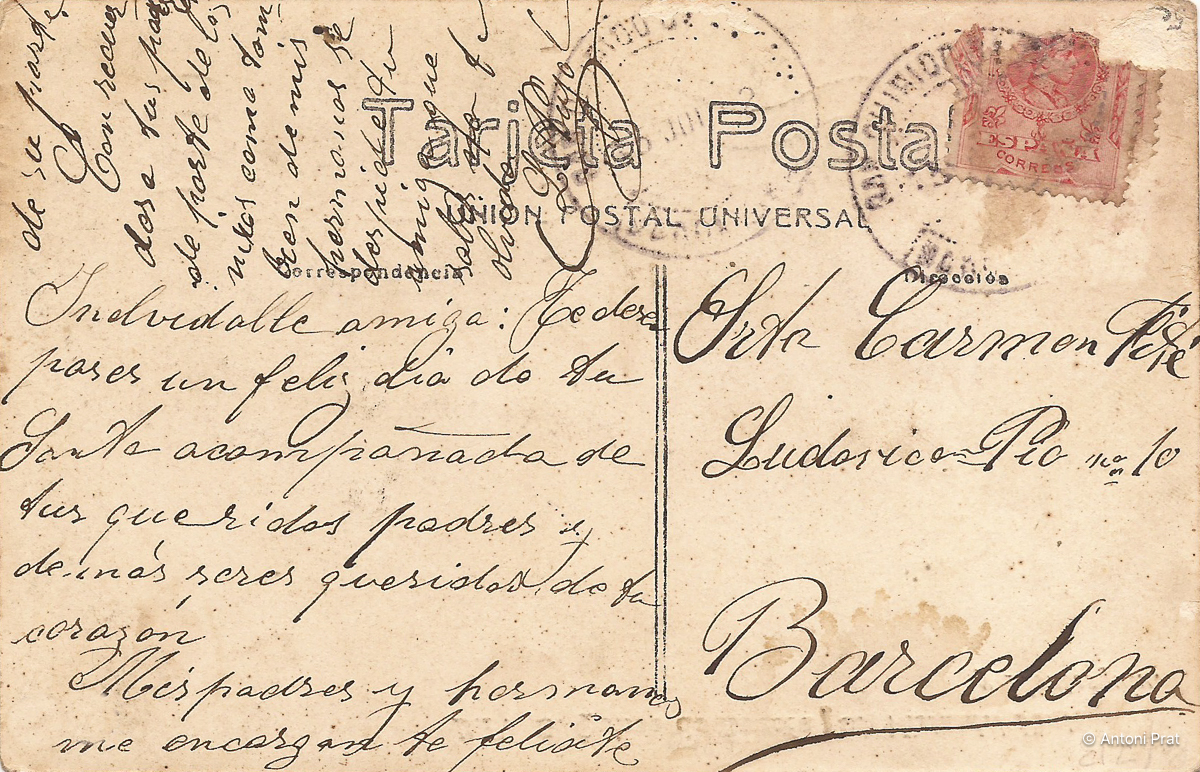 Tarjeta Postal
UNION POSTAL UNIVERSAL
Correspondencia
Dirección
CORREOS
Indvidalle amiga: Tedeseo
pases un feliz dia de tu
Santo acompañada de
tus queridos padres y
demás seres queridos de tu
corazón
Mis padres y hermanos
me encargan te felicite
de su parte
Con recuer
dos a tus pa
de parte de los
mios como tam
bien de mis
hermanos se
despide tu
amiga que
sabes no te
olvida
Srta Carmen
Ludovico Pio nº 10
Barcelona
© Antoni Prat